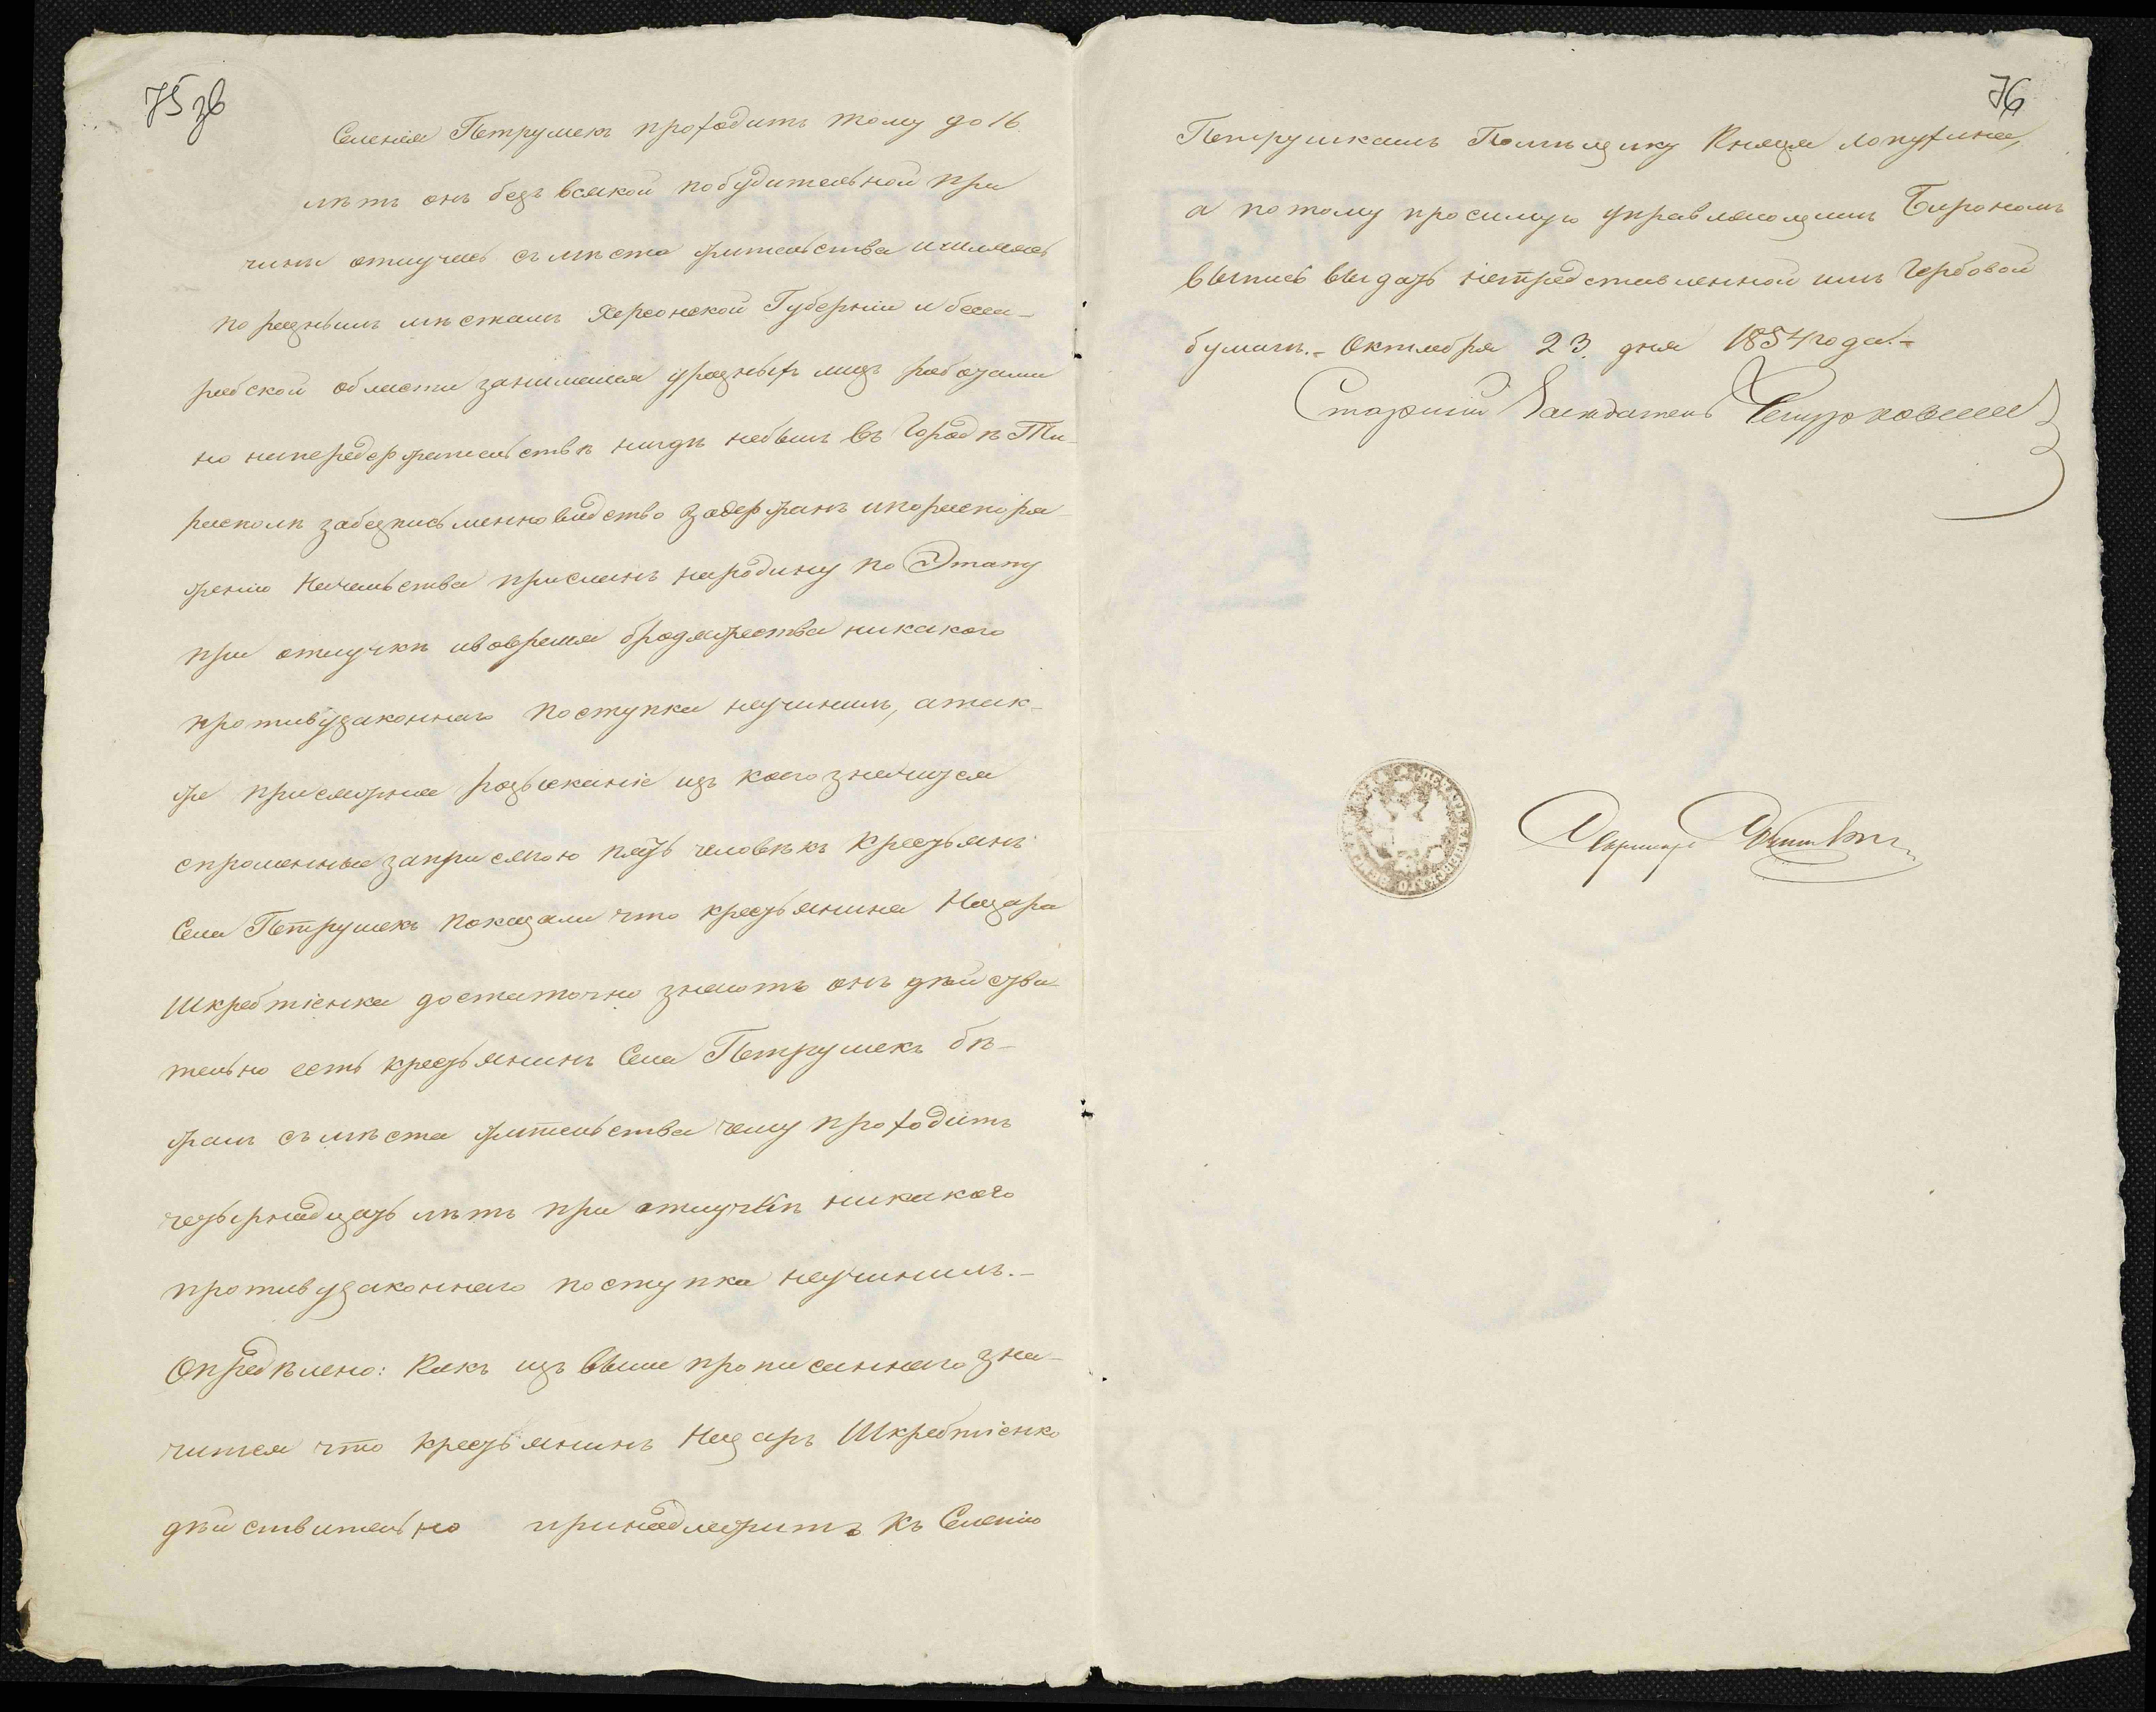 75 зв
Селенія Петрушекъ проходитъ тому до 16
лѣтъ онъ безъ всякой побудительной при
чины отлучась съ мѣста жительства шлялась
по разнымъ мѣстамъ Херсонской Губерніи и беса-
рабской области занимаясь у разныхъ лицъ работами
но напередержательствѣ нигдѣ небылъ въ Городѣ Ти-
располѣ забезписьменновидство задержанъ ипораспоря-
женію Начальства присланъ народину по Этапу
при отлучкѣ ивовремя бродяжества никакого
противузаконнаго поступка неучинилъ, атак-
же присяжное розысканіе изъ коего значится
спрошенные заприсягою пять человѣкъ крестьянъ
Села Петрушекъ показали что крестьянина Назара
Шкрабтіенка достаточно знаютъ онъ дѣйстви-
тельно есть крестьянинъ Села Петрушекъ бѣ-
жалъ съ мѣста жительства чему проходитъ
четырнадцать лѣтъ при отлучкѣ никакого
противузаконнаго поступка неучинилъ.-
Опредѣлено: Какъ изъ выше прописаннаго зна-
чится что крестьянинъ Назаръ Шкрабтіенко
дѣйствительно принадлежитъ къ Селенію
76
Петрушкамъ Помѣщику Князя Лопухина,
а потому просимую управляющимъ Бирономъ
выпись выдать напредставленной имъ Гербовой
бумагѣ.- Октября 23. дня 1854 года.-
Старшій Засѣдатель